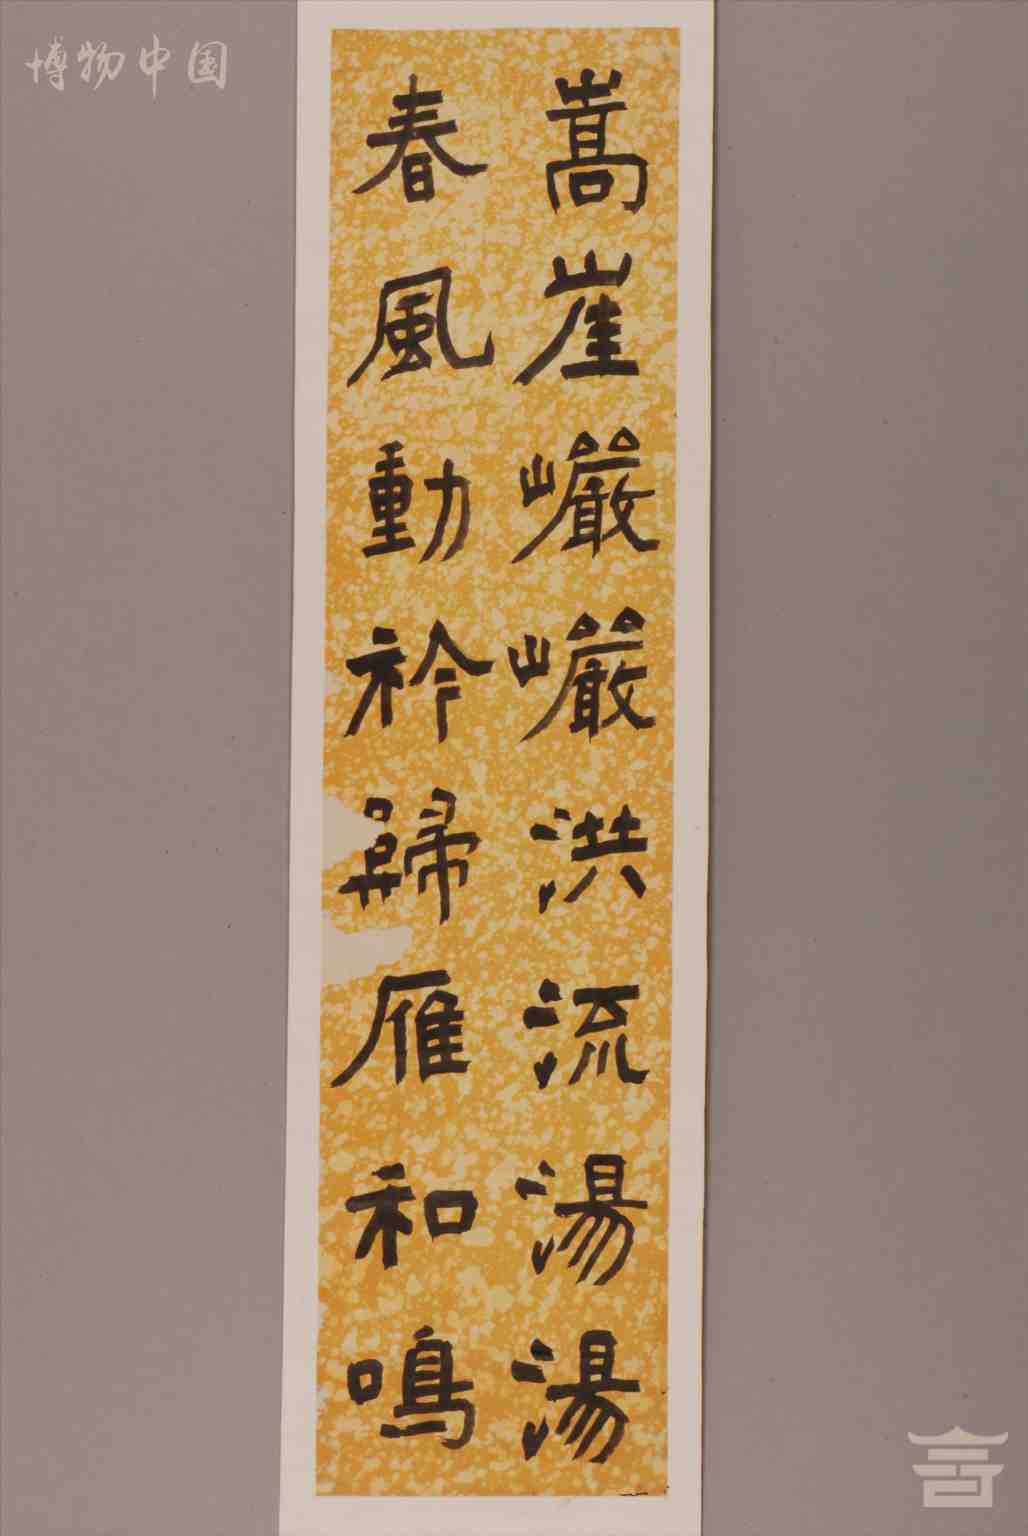 博物中国
嵩崖巖巖洪流湯湯
春風動衿歸雁和鳴